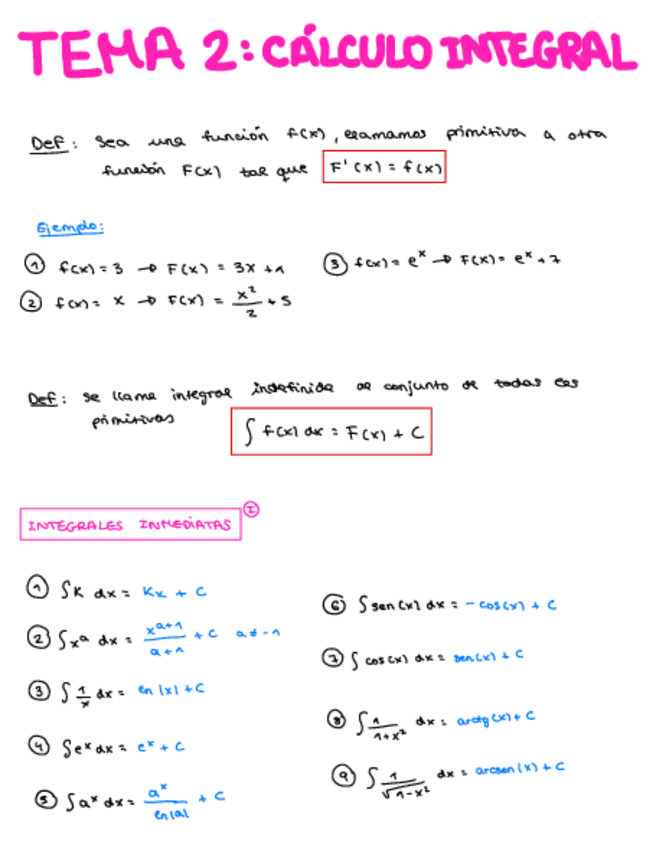 TEMA 2: CÁLCULO INTEGRAL
Def: Sea una función f(x), llamamos primitiva a otra
función F(x) tal que F'(x) = f(x)
Ejemplo:
① f(x) = 3 → F(x) = 3x + 1
② f(x) = x → F(x) = x²/2 + 5
③ f(x) = eˣ → F(x) = eˣ + 7
Def: Se llama integral indefinida al conjunto de todas las
primitivas
∫ f(x) dx = F(x) + C
INTEGRALES INMEDIATAS Ⓘ
① ∫K dx = Kx + C
② ∫xᵃ dx = xᵃ⁺¹/(a+1) + C a ≠ -1
③ ∫ 1/x dx = ln |x| + C
④ ∫eˣ dx = eˣ + C
⑤ ∫aˣ dx = aˣ/ln|a| + C
⑥ ∫ sen(x) dx = -cos(x) + C
⑦ ∫ cos(x) dx = sen(x) + C
⑧ ∫ 1/(1+x²) dx = arctg(x) + C
⑨ ∫ 1/√(1-x²) dx = arcsen(x) + C